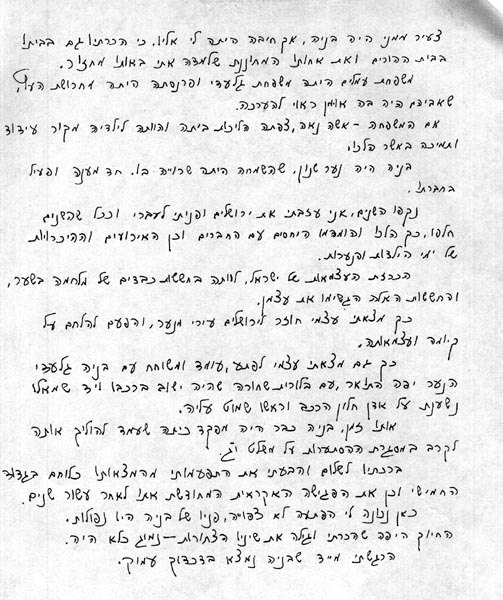 צעיר ממני היה בניה, אך חיבה היתה לי אליו, כי הכרתיו גם בביתו
בבית ההורים ואת אחותו המחוננת שלמדה אתי באותו מחזור.
משפחת עמלים היתה משפחת גלעדי ופרנסתה היתה מחרושת העץ,
שאביהם היה בה אומן ראוי להערכה.
אם המשפחה - אשה נאה, צפתה הליכות ביתה והותה לילדיה מקור עידוד
ותמיכה באשר פלוני.
בניה היה נער שנון, שהשמחה היתה שרויה בו. חד מענה ופעיל
בחברתו.
נקפו השנים, אני עזבתי את ירושלים ופניתי לעברי וככל שהשנים
חלפו, כך הלכו והועמו היחסים עם החברים וכן האירועים וההיכרויות
של ימי הילדות והנערות.
הכרזת העצמאות של ישראל, לוותה בחששות כבדים של מלחמה בשער,
והחששות האלה הגשימו את עצמן.
כך מצאתי עצמי חוזר לירושלים עירי מנוער, והפעם להלחם על
קיומה ועצמאותה.
כך גם מצאתי עצמי לפתע, עומד ומשוחח עם בניה גלעדי
הנער יפה התואר, עם בלורית שחורה שהיה ישוב ברכבו ויד שמאלו
נשענת על אדן חלון הרכב וראשו שמוט עליה.
אותו זמן, בניה כבר היה מפקד כיתה שעמד להוליך אותה
לקרב במסגרת ההסתערות על משלט
ברכתיו לשלום והבעתי את התפעמותי מהמצאותו כלוחם בגדוד
החמישי וכן את הפגישה האקראית המחודשת אתו לאחר עשור שנים.
כאן נכונה לי הפתעה לא צפויה, פניו של בניה היו נפולות.
החיוך היפה שהכרתי וגילה את שיניו הצחורות - נמוג כלא היה.
הרגשתי מייד שבניה נמצא בדכדוך עמוק.